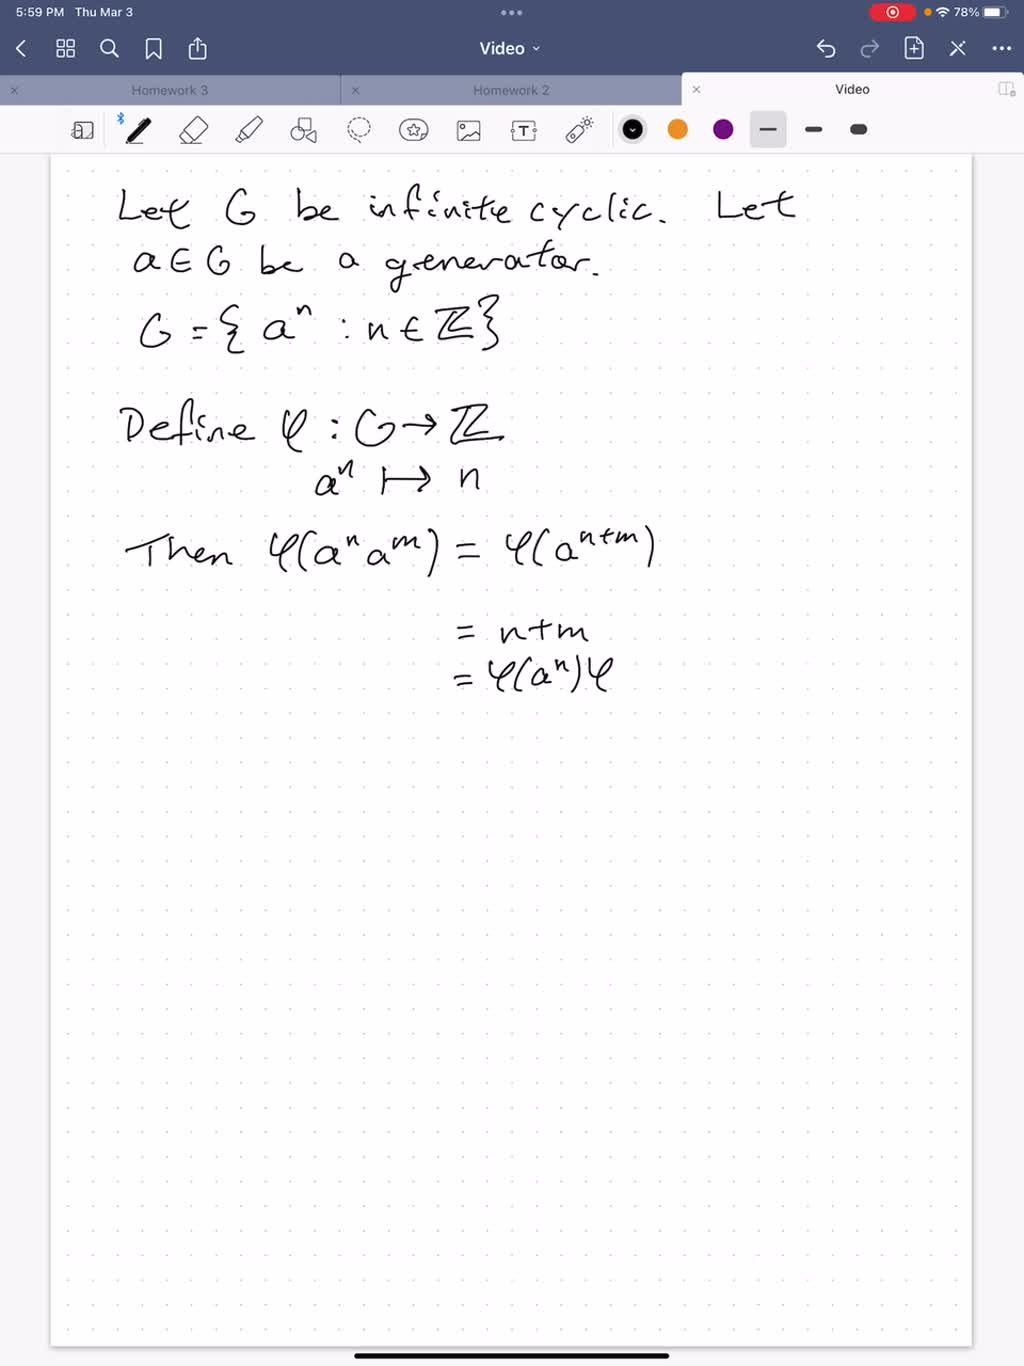 5:59 PM Thu Mar 3 78%
Video
Homework 3 Homework 2 Video
T
Let G be infinite cyclic. Let
a ∈ G be a generator.
G = { aⁿ : n ∈ ℤ }
Define φ : G → ℤ
aⁿ ↦ n
Then φ(aⁿ aᵐ) = φ(aⁿ⁺ᵐ)
= n+m
= φ(aⁿ)φ